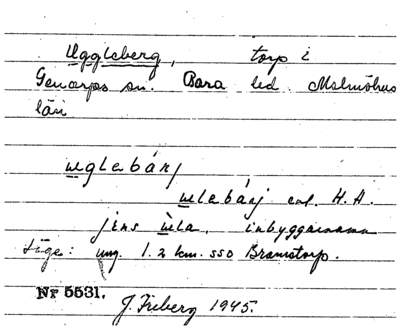 Uggleberg, torp i
Genarps sn. Bara hd. Malmöhus
län
uglebárj
ulebárj enl. H.A.
jens ùla, inbyggarnamn
Läge: ung. 1.2 km. sso Bramstorp.
Nr 5531.
J. Friberg 1945.